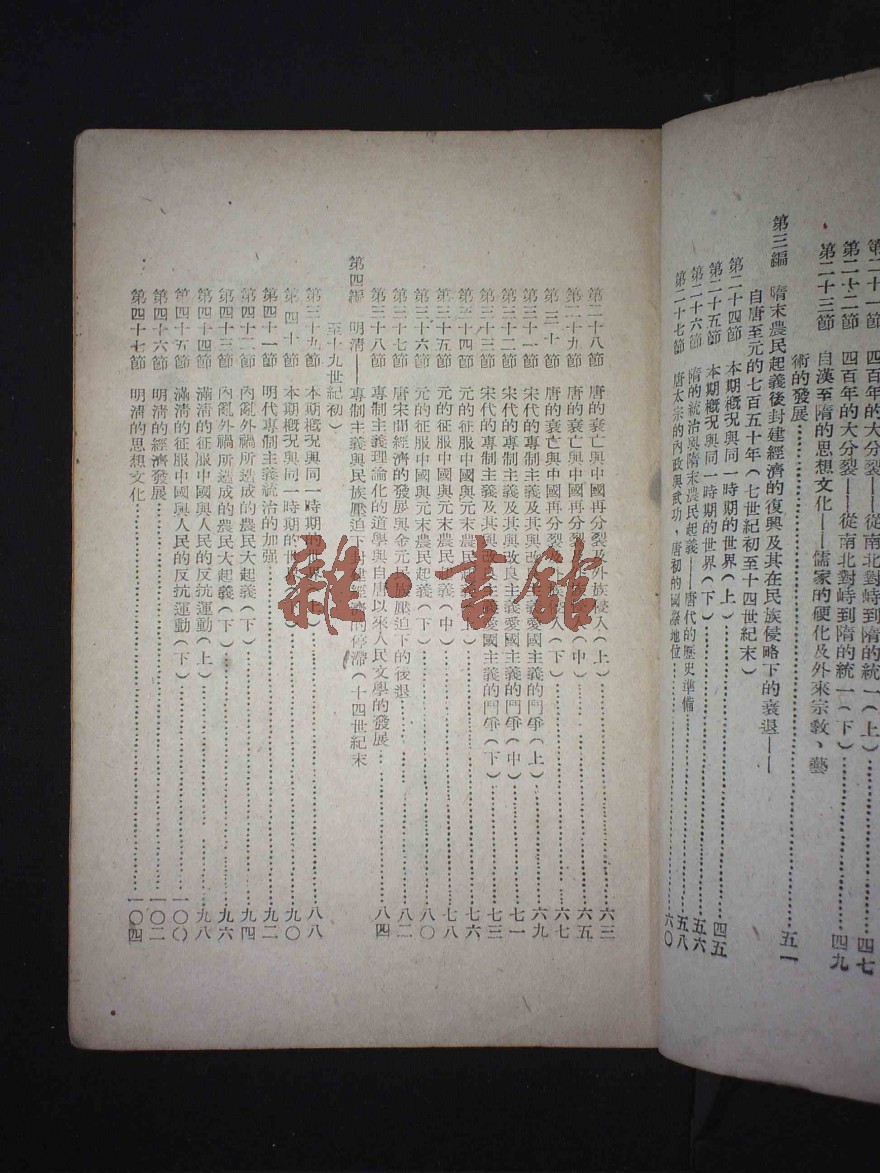 第二十一節 四百年的大分裂——從南北對峙到隋的統一(上)……四七
第二十二節 四百年的大分裂——從南北對峙到隋的統一(下)……四九
第二十三節 自漢至隋的思想文化——儒家的硬化及外來宗教、藝
術的發展……五一
第三編 隋末農民起義後封建經濟的復興及其在民族侵略下的衰退——
自唐至元的七百五十年(七世紀初至十四世紀末)
第二十四節 本期概況與同一時期的世界(上)……四五
第二十五節 本期概況與同一時期的世界(下)……五六
第二十六節 隋的統治與隋末農民起義——唐代的歷史準備……五八
第二十七節 唐太宗的內政與武功,唐初的國際地位……六〇
第二十八節 唐的衰亡與中國再分裂及外族侵入(上)……六三
第二十九節 唐的衰亡與中國再分裂及外族侵入(中)……六五
第三十節 唐的衰亡與中國再分裂及外族侵入(下)……六七
第三十一節 宋代的專制主義及其與改良主義愛國主義的鬥爭(上)……六九
第三十二節 宋代的專制主義及其與改良主義愛國主義的鬥爭(中)……七一
第三十三節 宋代的專制主義及其與改良主義愛國主義的鬥爭(下)……七三
第三十四節 元的征服中國與元末農民起義(上)……七六
第三十五節 元的征服中國與元末農民起義(中)……七八
第三十六節 元的征服中國與元末農民起義(下)……八〇
第三十七節 唐宋間經濟的發展與金元民族壓迫下的後退……八二
第三十八節 專制主義理論化的道學與自唐以來人民文學的發展……八四
第四編 明清——專制主義與民族壓迫下封建經濟的停滯(十四世紀末
至十九世紀初)
第三十九節 本期概況與同一時期的世界(上)……八八
第四十節 本期概況與同一時期的世界(下)……九〇
第四十一節 明代專制主義統治的加强……九二
第四十二節 內亂外禍所造成的農民大起義(上)……九四
第四十三節 內亂外禍所造成的農民大起義(下)……九六
第四十四節 滿清的征服中國與人民的反抗運動(上)……九八
第四十五節 滿清的征服中國與人民的反抗運動(下)……一〇〇
第四十六節 明清的經濟發展……一〇二
第四十七節 明清的思想文化……一〇四
雜·書館